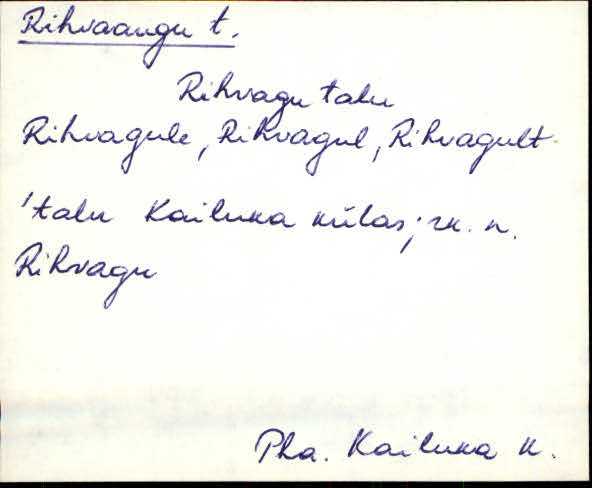 Rihvaangu t.
Rihvagu talu
Rihvagule, Rihvagul, Rihvagult
'talu Kailuka külas; rk. n.
Rihvagu
Pha. Kailuka k.